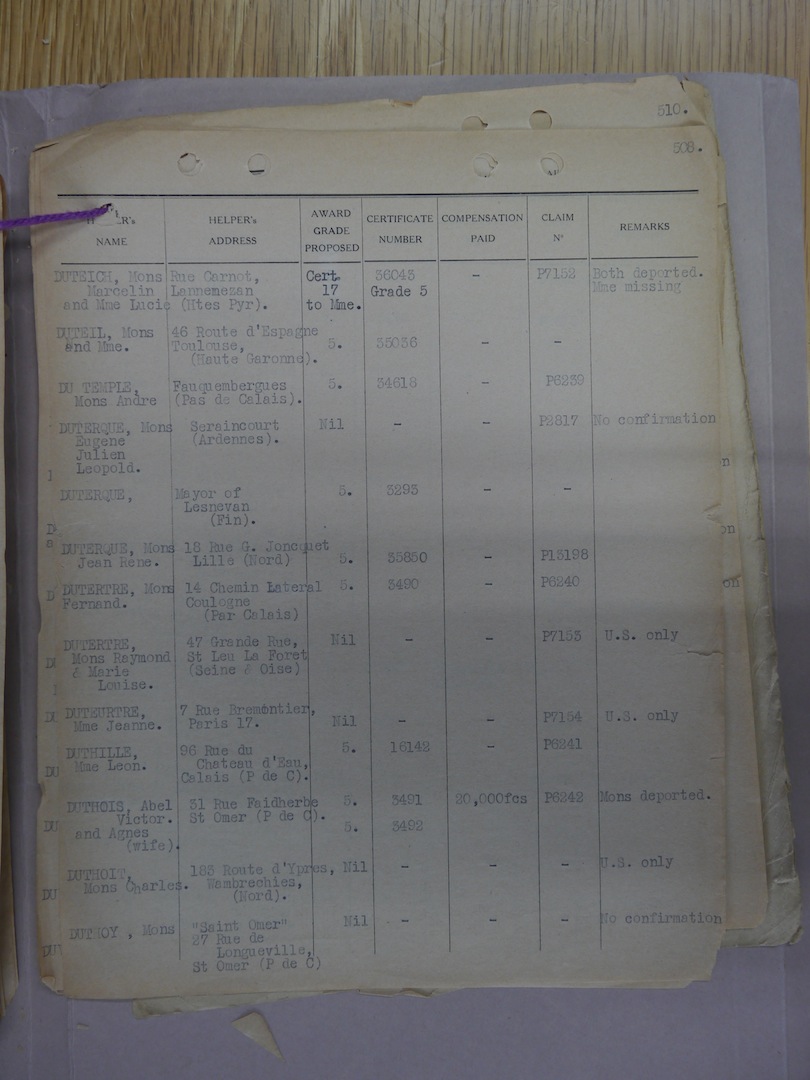 510.
508.
HELPER's HELPER's AWARD CERTIFICATE COMPENSATION CLAIM REMARKS
NAME ADDRESS GRADE NUMBER PAID Nº
PROPOSED
DUTEICH, Mons Rue Carnot, Cert. 36043 - P7152 Both deported.
Marcelin Lannemezan 17 Grade 5 Mme missing
and Mme Lucie (Htes Pyr). to Mme.
DUTEIL, Mons 46 Route d'Espagne
and Mme. Toulouse, 5. 35036 - -
(Haute Garonne).
DU TEMPLE, Fauquembergues 5. 34618 - P6239
Mons Andre (Pas de Calais).
DUTERQUE, Mons Seraincourt Nil - - P2817 No confirmation
Eugene (Ardennes).
Julien
Leopold.
DUTERQUE, Mayor of 5. 3293 - -
Lesnevan
(Fin).
DUTERQUE, Mons 18 Rue G. Joncquet
Jean Rene. Lille (Nord) 5. 35850 - P13198
DUTERTRE, Mons 14 Chemin Lateral 5. 3490 - P6240
Fernand. Coulogne
(Par Calais)
DUTERTRE, 47 Grande Rue, Nil - - P7153 U.S. only
Mons Raymond St Leu La Foret
& Marie (Seine & Oise)
Louise.
DUTEURTRE, 7 Rue Bremontier, Nil - - P7154 U.S. only
Mme Jeanne. Paris 17.
DUTHILLE, 96 Rue du 5. 16142 - P6241
Mme Leon. Chateau d'Eau,
Calais (P de C).
DUTHOIS, Abel 31 Rue Faidherbe 5. 3491 20,000fcs P6242 Mons deported.
Victor. St Omer (P de C).
and Agnes 5. 3492
(wife).
DUTHOIT, 183 Route d'Ypres, Nil - - - U.S. only
Mons Charles. Wambrechies,
(Nord).
DUTHOY , Mons "Saint Omer" Nil - - - No confirmation
27 Rue de
Longueville,
St Omer (P de C)